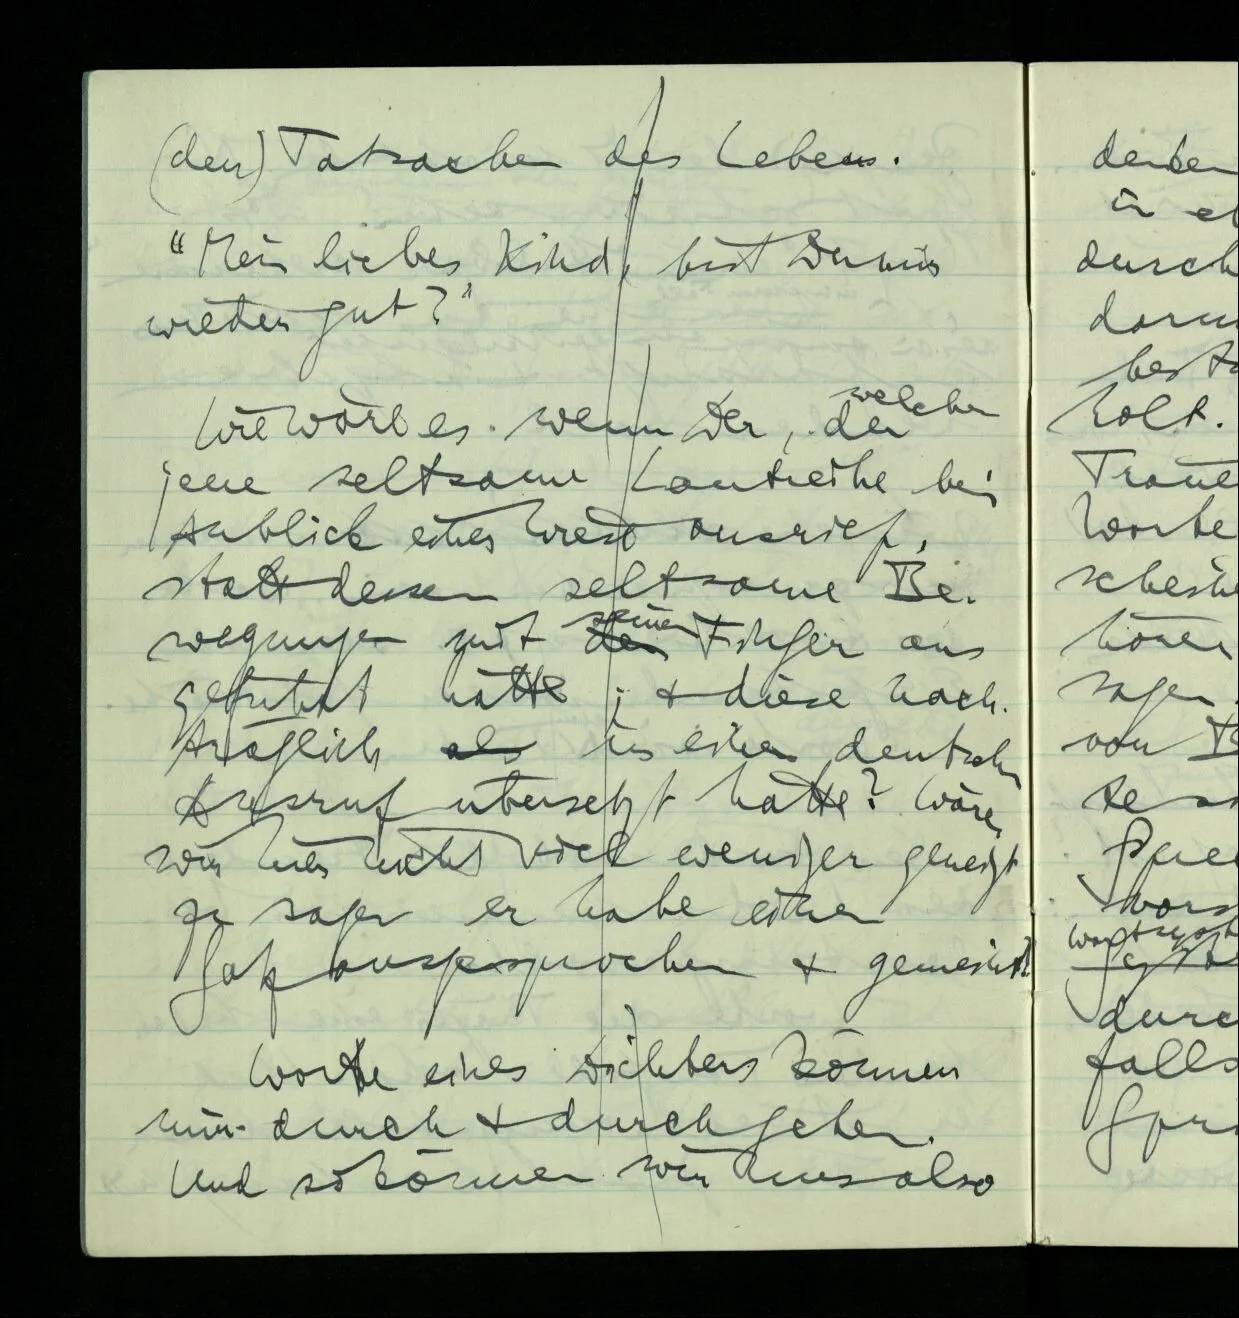 (den) Tatsachen des Lebens.
"Mein liebes Kind, bist Du mir
wieder gut?"
Wie wär es wenn der, der
welcher
jene seltsame Lautreihe bei
Anblick eines ausrief,
statt dessen seltsame Be-
wegungen mit den Finger aus
seinen
geführt hätte; & diese nach-
träglich als in einen deutschen
Ausruf übersetzt hätte? Wären
wir hier nicht viel weniger geneigt
zu sagen er habe einen
Satz ausgesprochen & gemeint?
Worte eines Dichters können
uns durch & durch gehen.
Und so können wir uns also
denken
in
durch
holt.
Worte
sagen.
von
durch
falls